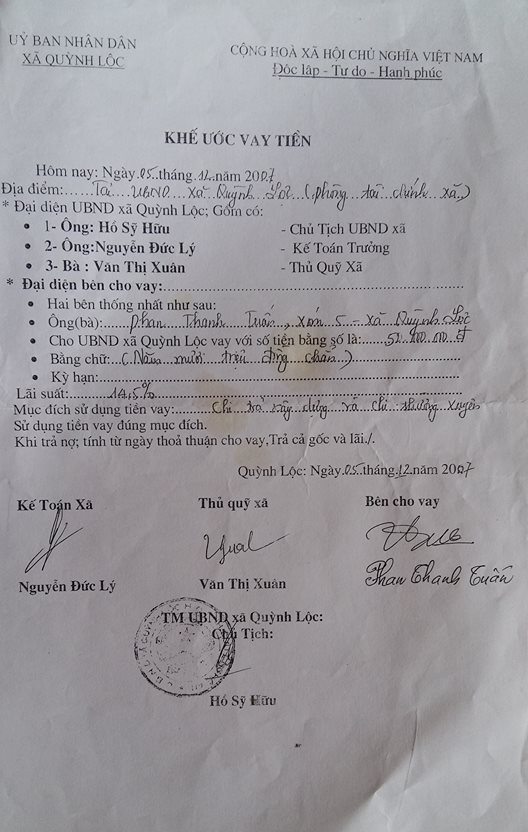 UỶ BAN NHÂN DÂN
XÃ QUỲNH LỘC
CỘNG HOÀ XÃ HỘI CHỦ NGHĨA VIỆT NAM
Độc lập - Tự do - Hạnh phúc
KHẾ ƯỚC VAY TIỀN
Hôm nay: Ngày.05.tháng.12.năm 2007
Địa điểm:......Tại UBND xã Quỳnh Lộc (phòng tài chính xã)
* Đại diện UBND xã Quỳnh Lộc; Gồm có:
• 1- Ông: Hồ Sỹ Hữu - Chủ Tịch UBND xã
• 2- Ông:Nguyễn Đức Lý - Kế Toán Trưởng
• 3- Bà : Văn Thị Xuân - Thủ Quỹ Xã
* Đại diện bên cho vay:
• Hai bên thống nhất như sau:
• Ông(bà): Phan Thanh Tuấn, xóm 5 - xã Quỳnh Lộc
• Cho UBND xã Quỳnh Lộc vay với số tiền bằng số là:
• Bằng chữ:..(Năm mươi triệu đồng chẵn)
• Kỳ hạn:
Lãi suất:......14,5%
Mục đích sử dụng tiền vay: Chi trả xây dựng và chi thường xuyên
Sử dụng tiền vay đúng mục đích.
Khi trả nợ; tính từ ngày thoả thuận cho vay,Trả cả gốc và lãi./.
Quỳnh Lộc: Ngày.05.tháng.12.năm 2007
Kế Toán Xã Thủ quỹ xã Bên cho vay
Nguyễn Đức Lý Văn Thị Xuân Phan Thanh Tuấn
TM UBND xã Quỳnh Lộc:
Chủ Tịch:
Hồ Sỹ Hữu